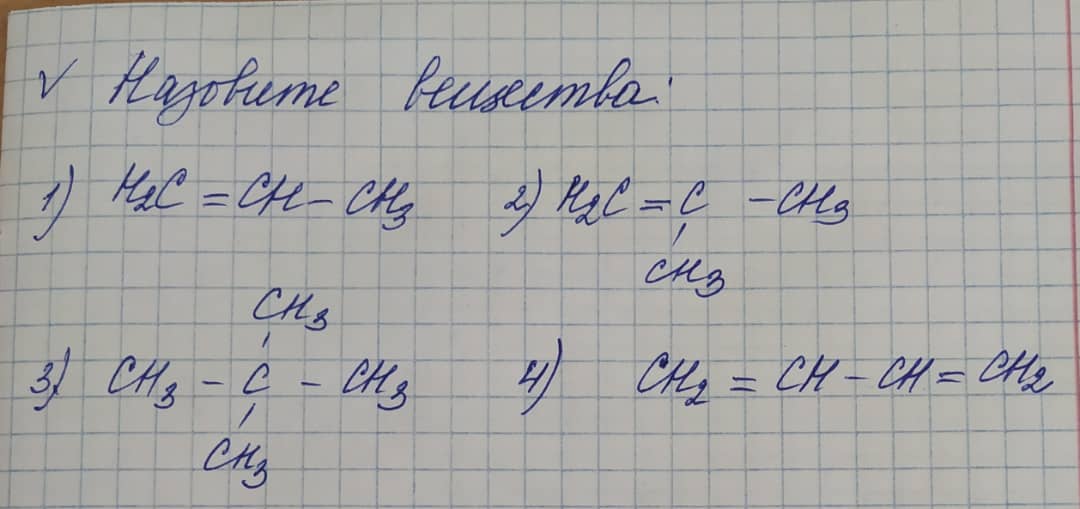 √ Назовите вещества:
1) H₂C = CH – CH₃ 2) H₂C = C – CH₃
CH₃
CH₃
3) CH₃ – C – CH₃ 4) CH₂ = CH – CH = CH₂
CH₃